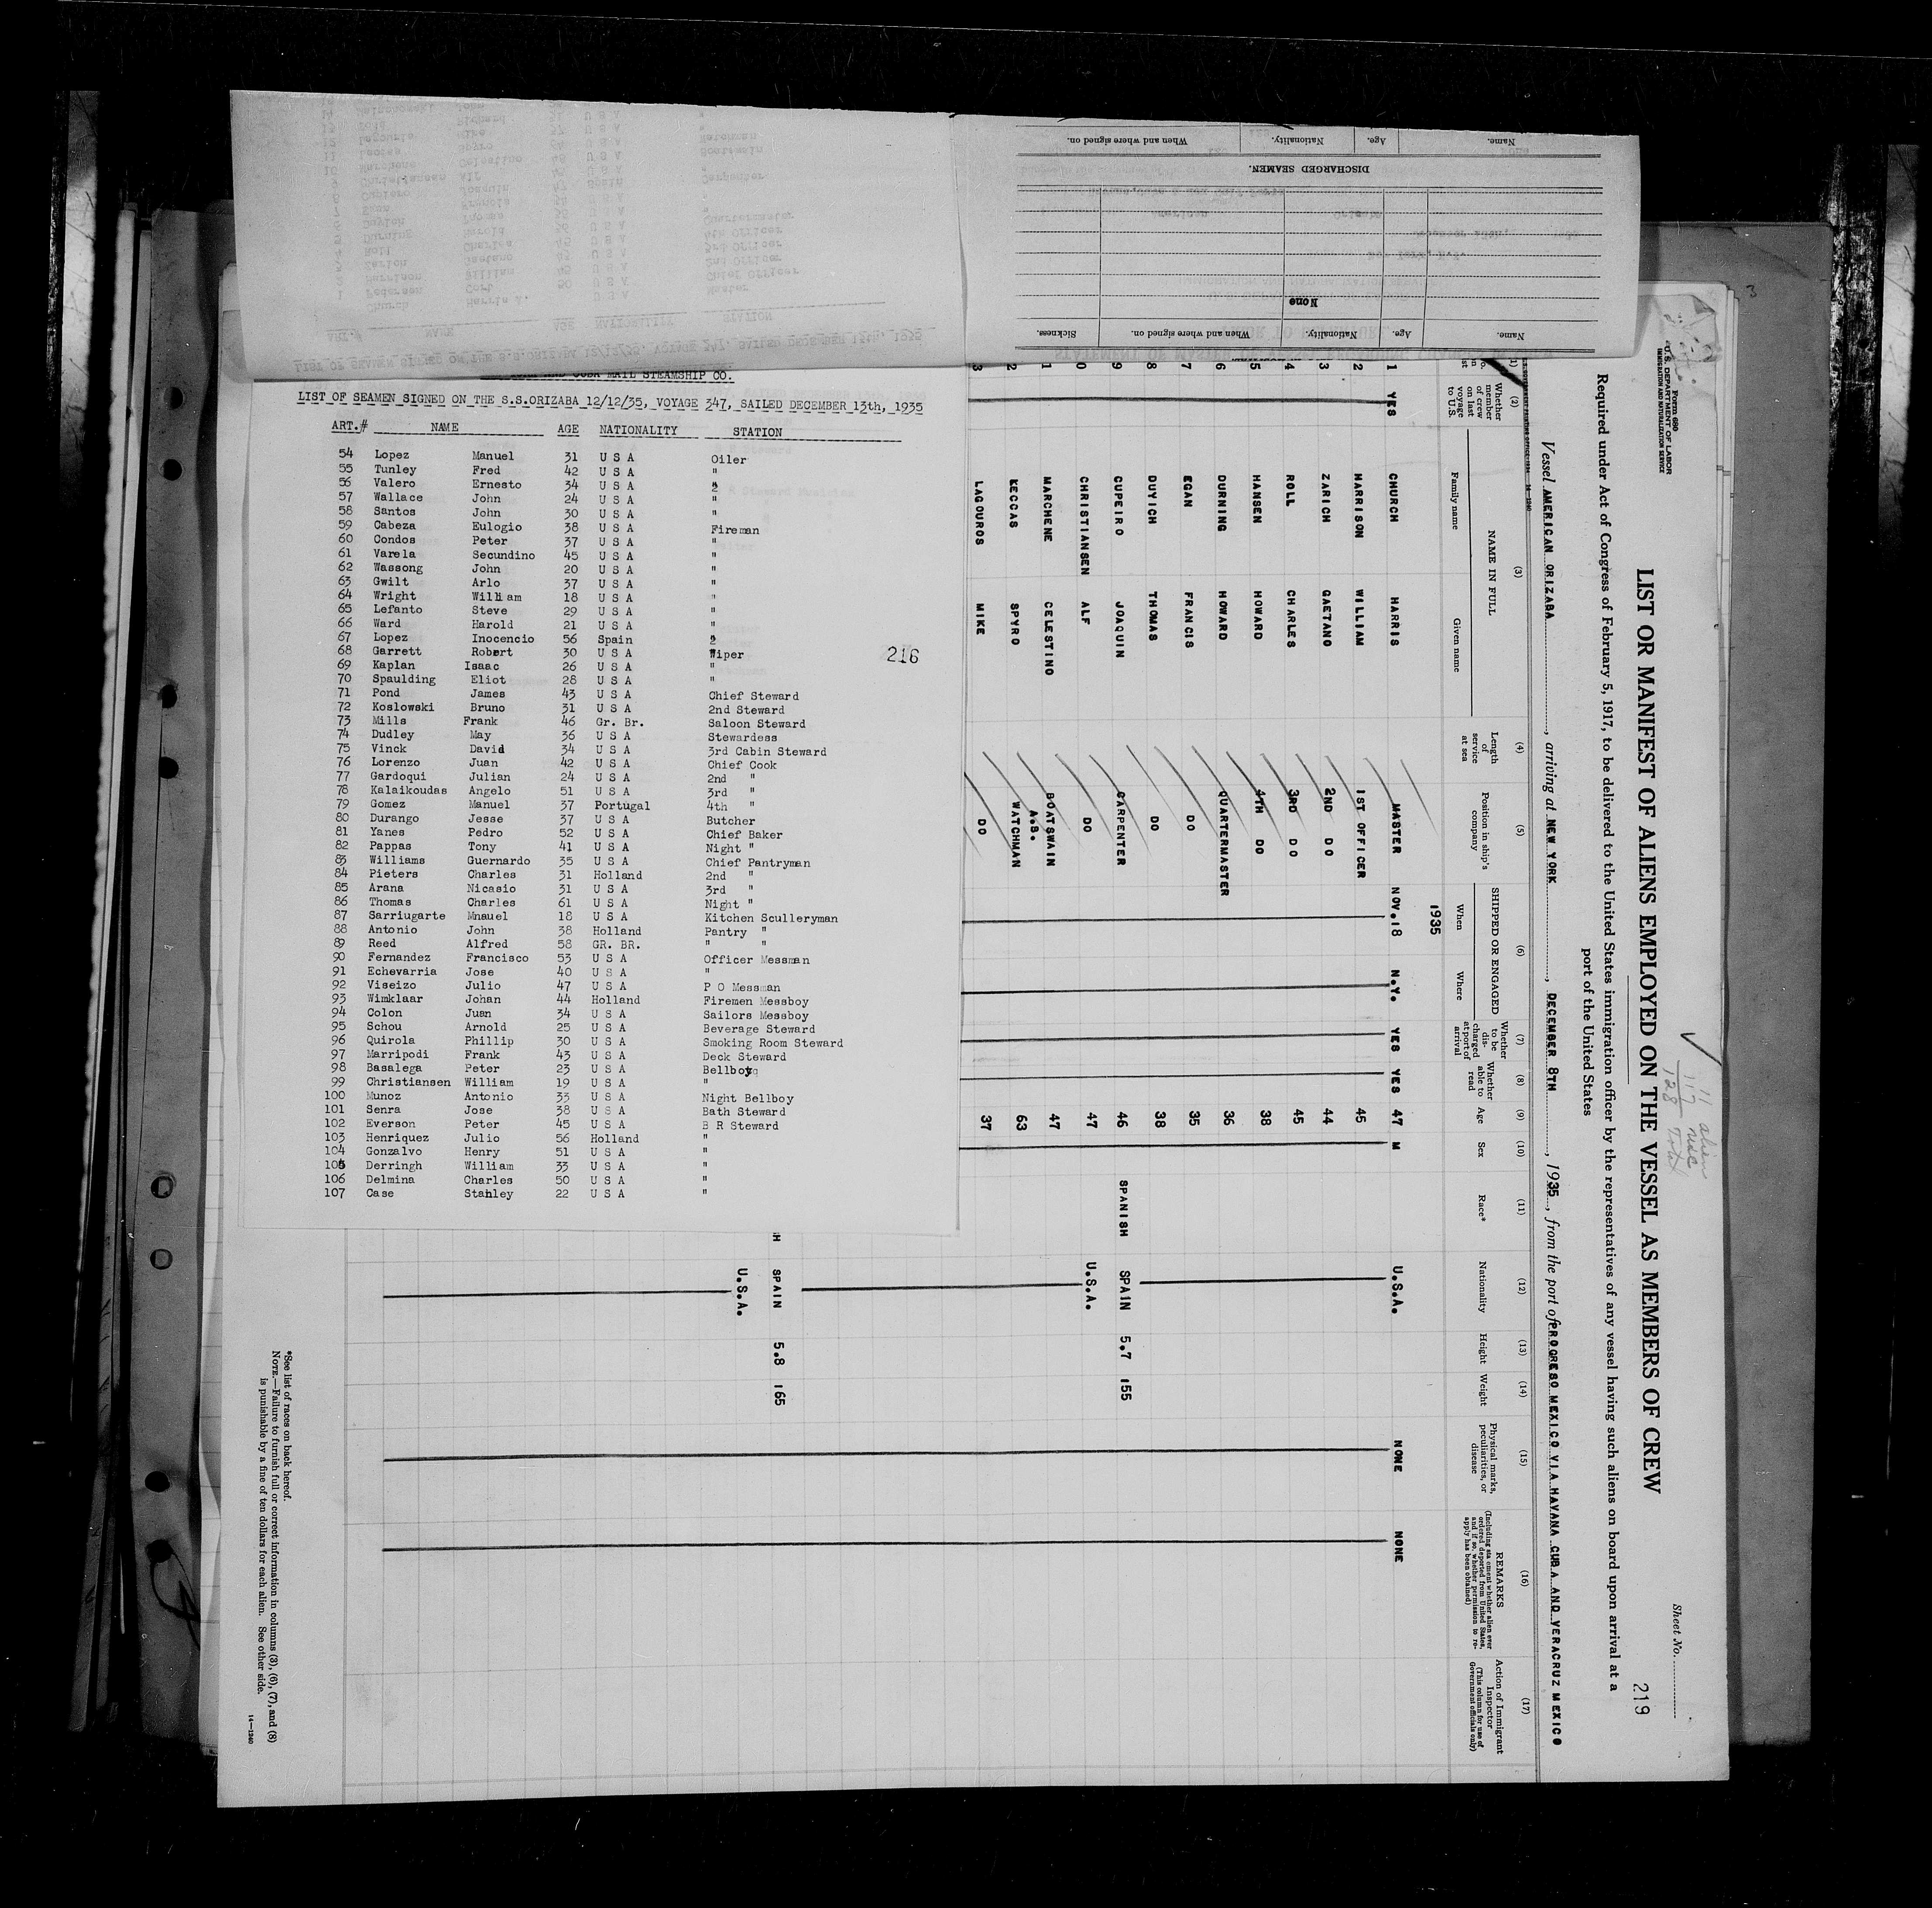 CUBA MAIL STEAMSHIP CO.
LIST OF SEAMEN SIGNED ON THE S.S.ORIZABA 12/12/35, VOYAGE 347, SAILED DECEMBER 13th, 1935
ART.# NAME AGE NATIONALITY STATION
54 Lopez Manuel 31 U S A Oiler
55 Tunley Fred 42 U S A "
56 Valero Ernesto 34 U S A "
57 Wallace John 24 U S A "
58 Santos John 30 U S A "
59 Cabeza Eulogio 38 U S A Fireman
60 Condos Peter 37 U S A "
61 Varela Secundino 45 U S A "
62 Wassong John 20 U S A "
63 Gwilt Arlo 37 U S A "
64 Wright William 18 U S A "
65 Lefanto Steve 29 U S A "
66 Ward Harold 21 U S A "
67 Lopez Inocencio 56 Spain "
68 Garrett Robert 30 U S A Wiper
216
69 Kaplan Isaac 26 U S A "
70 Spaulding Eliot 28 U S A "
71 Pond James 43 U S A Chief Steward
72 Koslowski Bruno 31 U S A 2nd Steward
73 Mills Frank 46 Gr. Br. Saloon Steward
74 Dudley May 36 U S A Stewardess
75 Vinck David 34 U S A 3rd Cabin Steward
76 Lorenzo Juan 42 U S A Chief Cook
77 Gardoqui Julian 24 U S A 2nd "
78 Kalaikoudas Angelo 51 U S A 3rd "
79 Gomez Manuel 37 Portugal 4th "
80 Durango Jesse 37 U S A Butcher
81 Yanes Pedro 52 U S A Chief Baker
82 Pappas Tony 41 U S A Night "
83 Williams Guernardo 35 U S A Chief Pantryman
84 Pieters Charles 31 Holland 2nd "
85 Arana Nicasio 31 U S A 3rd "
86 Thomas Charles 61 U S A Night "
87 Sarriugarte Mnauel 18 U S A Kitchen Sculleryman
88 Antonio John 38 Holland Pantry "
89 Reed Alfred 58 GR. BR. " "
90 Fernandez Francisco 53 U S A Officer Messman
91 Echevarria Jose 40 U S A "
92 Viseizo Julio 47 U S A P O Messman
93 Wimklaar Johan 44 Holland Firemen Messboy
94 Colon Juan 34 U S A Sailors Messboy
95 Schou Arnold 25 U S A Beverage Steward
96 Quirola Phillip 30 U S A Smoking Room Steward
97 Marripodi Frank 43 U S A Deck Steward
98 Basalega Peter 23 U S A Bellboy
99 Christiansen William 19 U S A "
100 Munoz Antonio 33 U S A Night Bellboy
101 Senra Jose 38 U S A Bath Steward
102 Everson Peter 45 U S A B R Steward
103 Henriquez Julio 56 Holland "
104 Gonzalvo Henry 51 U S A "
105 Derringh William 33 U S A "
106 Delmina Charles 50 U S A "
107 Case Stahley 22 U S A "
Name. Age. Nationality. When and where signed on. Sickness.
None
DISCHARGED SEAMEN.
Name. Age. Nationality. When and where signed on.
Form 680
U. S. DEPARTMENT OF LABOR
IMMIGRATION AND NATURALIZATION SERVICE
3
11 aliens
117 usc
128 Total
Sheet No.
219
LIST OR MANIFEST OF ALIENS EMPLOYED ON THE VESSEL AS MEMBERS OF CREW
Required under Act of Congress of February 5, 1917, to be delivered to the United States immigration officer by the representatives of any vessel having such aliens on board upon arrival at a
port of the United States
Vessel AMERICAN ORIZABA, arriving at NEW YORK, DECEMBER 8TH, 1935, from the port of PROGRESO MEXICO VIA HAVANA CUBA AND VERACRUZ MEXICO
(2) (3) (4) (5) (6) (7) (8) (9) (10) (11) (12) (13) (14) (15) (16) (17)
Whether member of crew on last voyage to U.S.
NAME IN FULL
Family name Given name
Length of service at sea
Position in ship's company
SHIPPED OR ENGAGED
When Where
Whether to be discharged at port of arrival
Whether able to read
Age
Sex
Race*
Nationality
Height
Weight
Physical marks, peculiarities, or disease
REMARKS
(Including statement whether alien ever ordered deported from United States, and if so, whether permission to reapply has been obtained)
Action of Immigrant Inspector
(This column for use of Government officials only)
1935
1 YES CHURCH HARRIS MASTER NOV.18 N.Y. YES YES 47 M U.S.A. NONE NONE
2 HARRISON WILLIAM 1ST OFFICER 45
3 ZARICH GAETANO 2ND DO 44
4 ROLL CHARLES 3RD DO 45
5 HANSEN HOWARD 4TH DO 38
6 DURNING HOWARD QUARTERMASTER 36
7 EGAN FRANCIS DO 35
8 DUYICH THOMAS DO 38
9 CUPEIRO JOAQUIN CARPENTER 46 SPANISH SPAIN 5.7 155
0 CHRISTIANSEN ALF DO 47 U.S.A.
1 MARCHENE CELESTINO BOATSWAIN 47
2 KECCAS SPYRO A.B. WATCHMAN 63
3 LAGOUROS MIKE DO 37
H SPAIN 5.8 165
U.S.A.
*See list of races on back hereof.
NOTE.—Failure to furnish full or correct information in columns (3), (6), (7), and (8)
is punishable by a fine of ten dollars for each alien. See other side.
14—1240